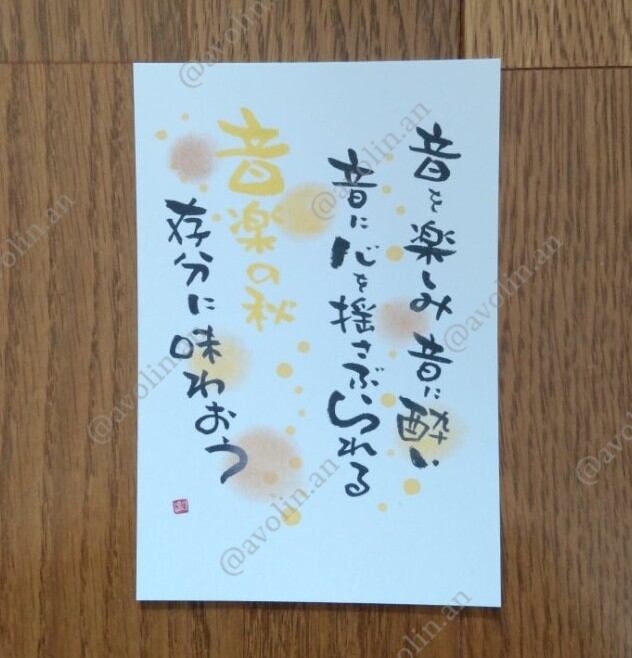 音を楽しみ 音に酔い
音に心を揺さぶられる
音楽の秋
存分に味わおう
@avolin.an
@avolin.an
@avolin.an
@avolin.an
@avolin.an
@avolin.an
@avolin.an
@avolin.an